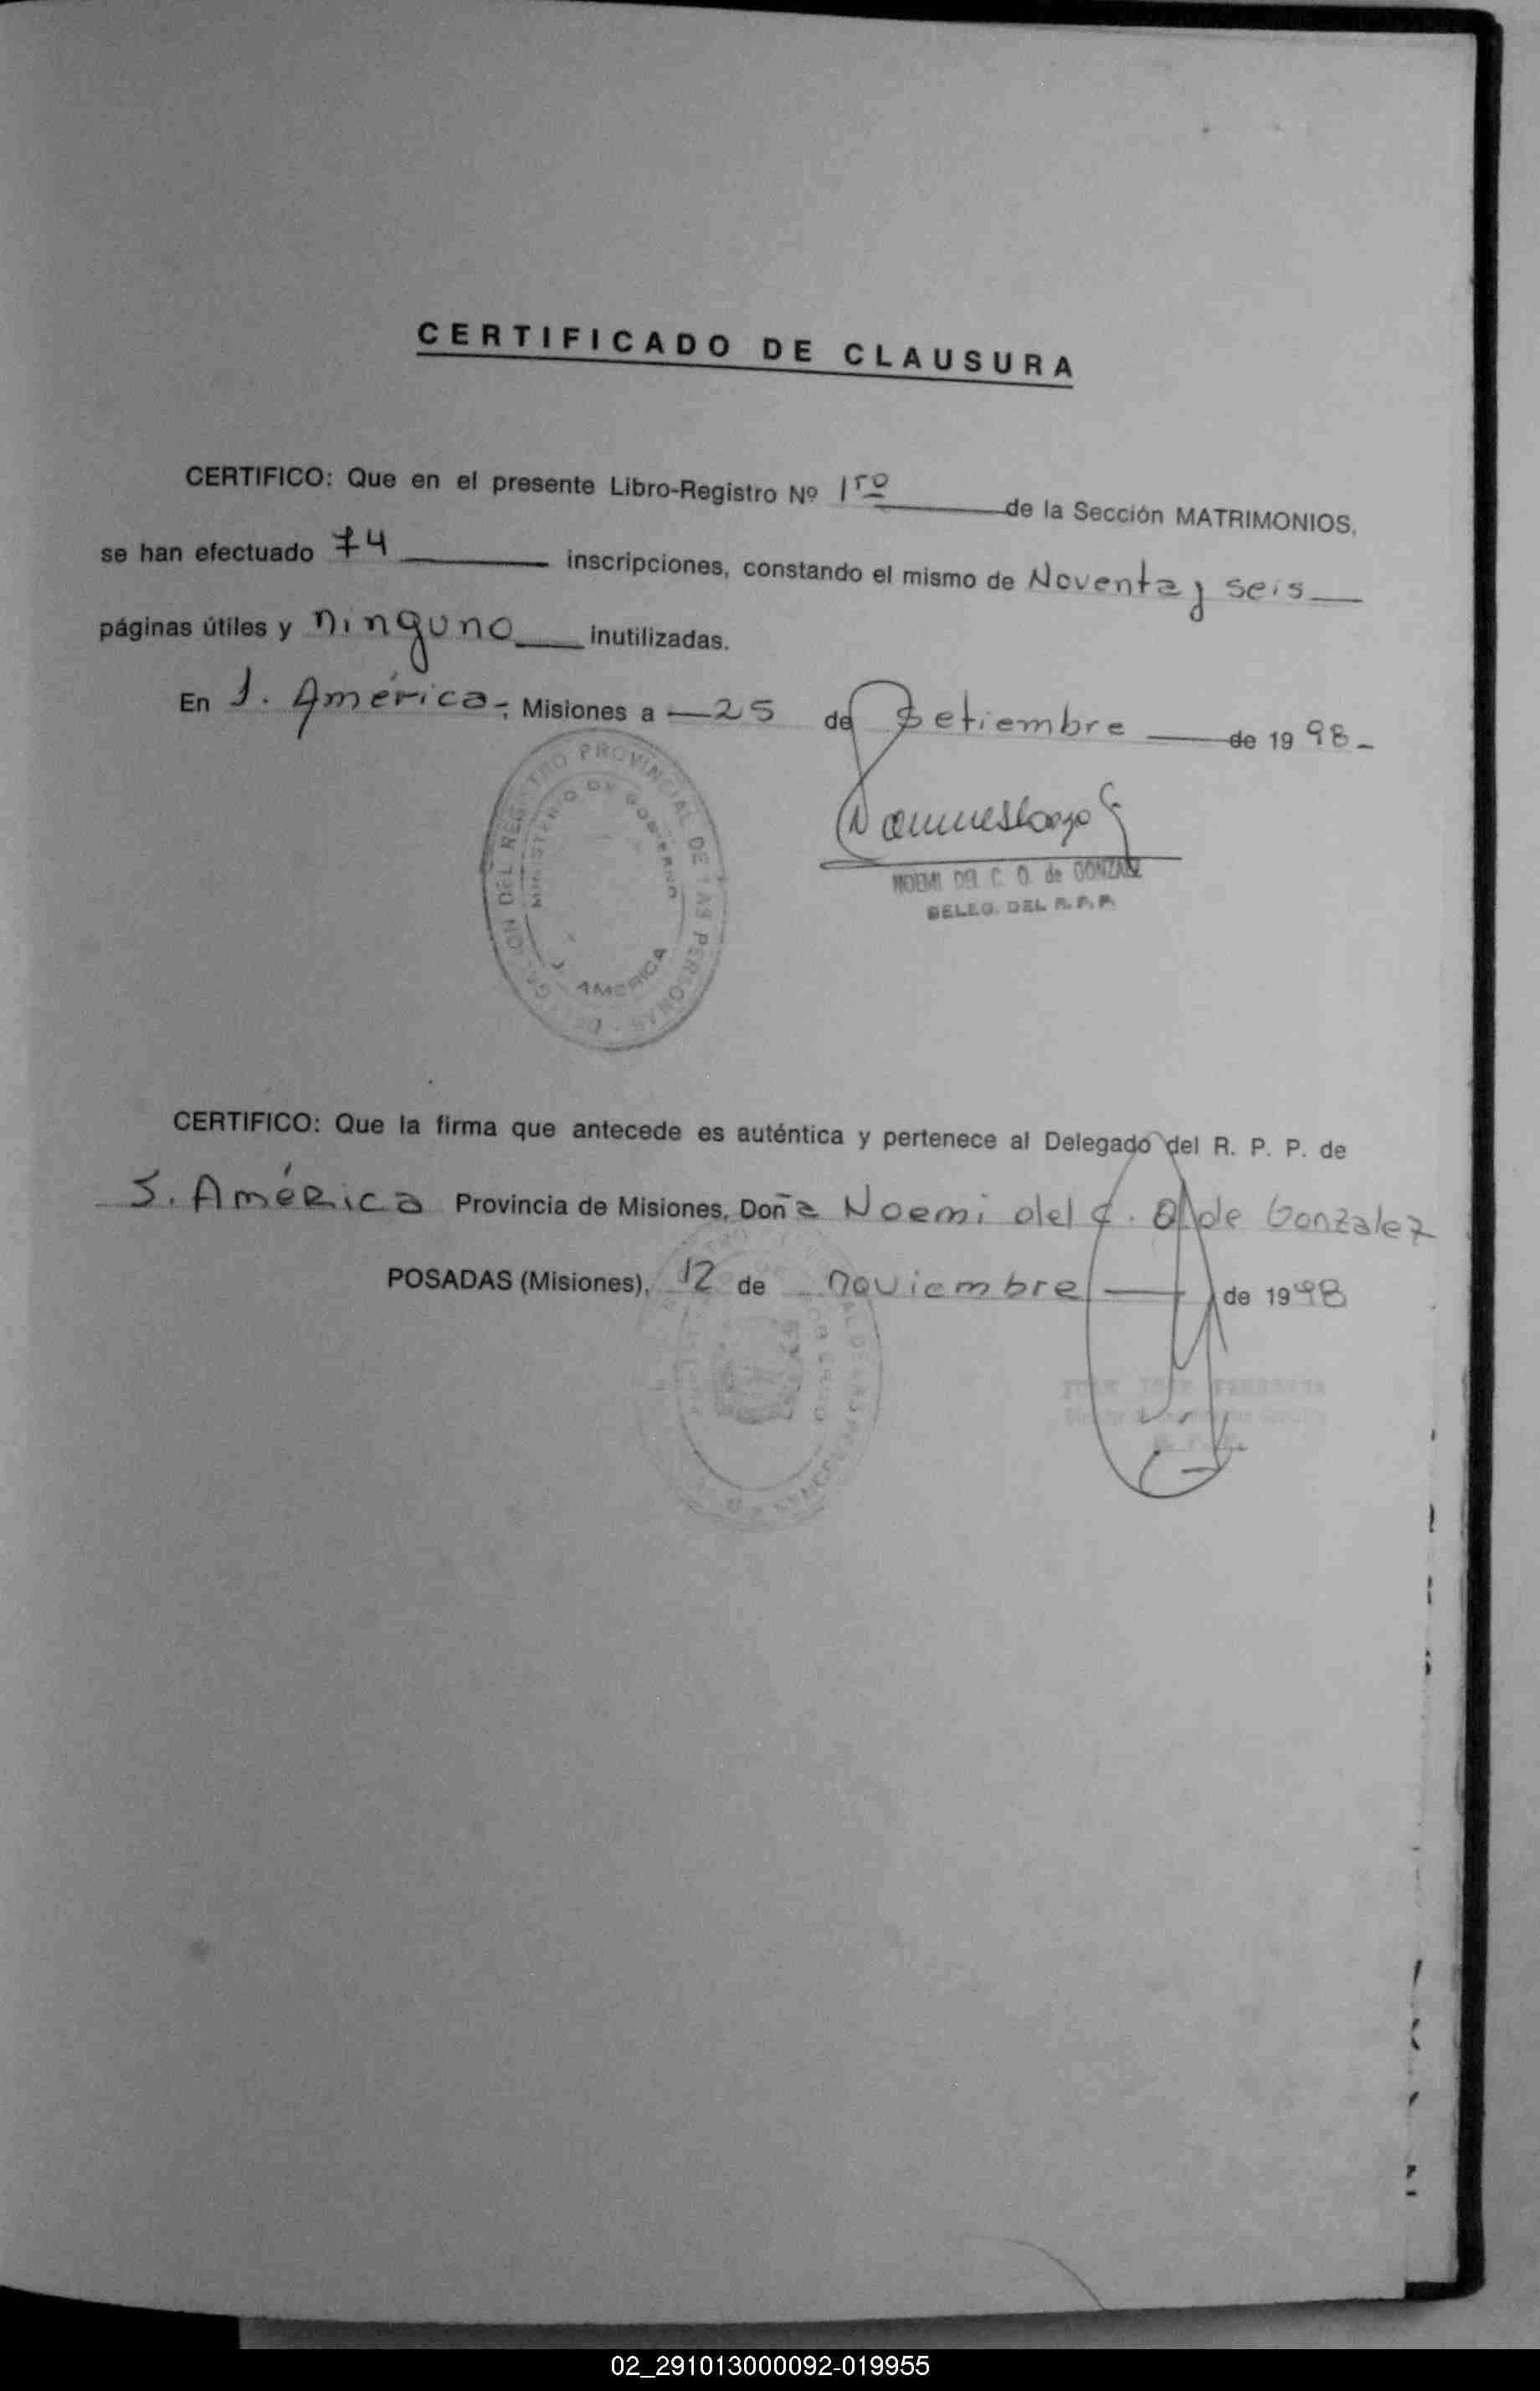 CERTIFICADO DE CLAUSURA
CERTIFICO: Que en el presente Libro-Registro Nº 1ro de la Sección MATRIMONIOS,
se han efectuado 74 inscripciones, constando el mismo de Noventa y seis
páginas útiles y ninguno inutilizadas.
En J. América, Misiones a 25 de Setiembre de 1998-
REGISTRO PROVINCIAL DE LAS PERSONAS
MINISTERIO DE GOBIERNO
AMERICA
NOEMI DEL C. O. de GONZALEZ
DELEG. DEL R.P.P.
CERTIFICO: Que la firma que antecede es auténtica y pertenece al Delegado del R. P. P. de
J. América Provincia de Misiones, Doña Noemi del C. O. de Gonzalez
POSADAS (Misiones), 12 de noviembre de 1998
02_291013000092-019955